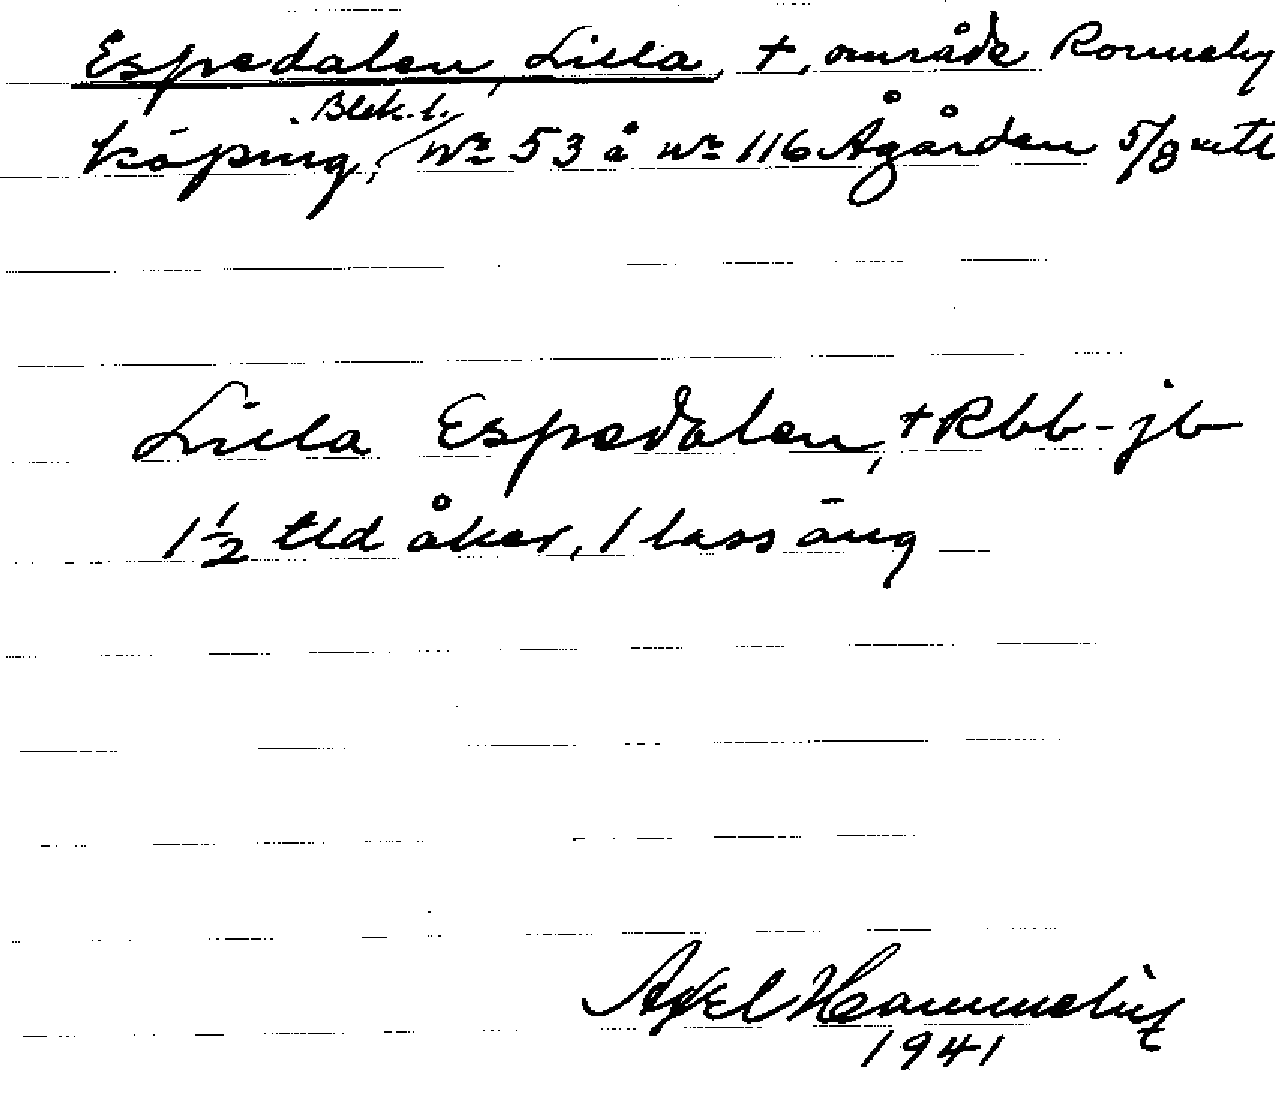 Espedalen, Lilla, +, område Ronneby
Blek. l.
köping, Nr 53 å nr 116 Ågården 5/8 mtl
Lilla Espedalen, + Rbb-jb
1 1/2 tld åker, 1 lass äng
Axel
1941